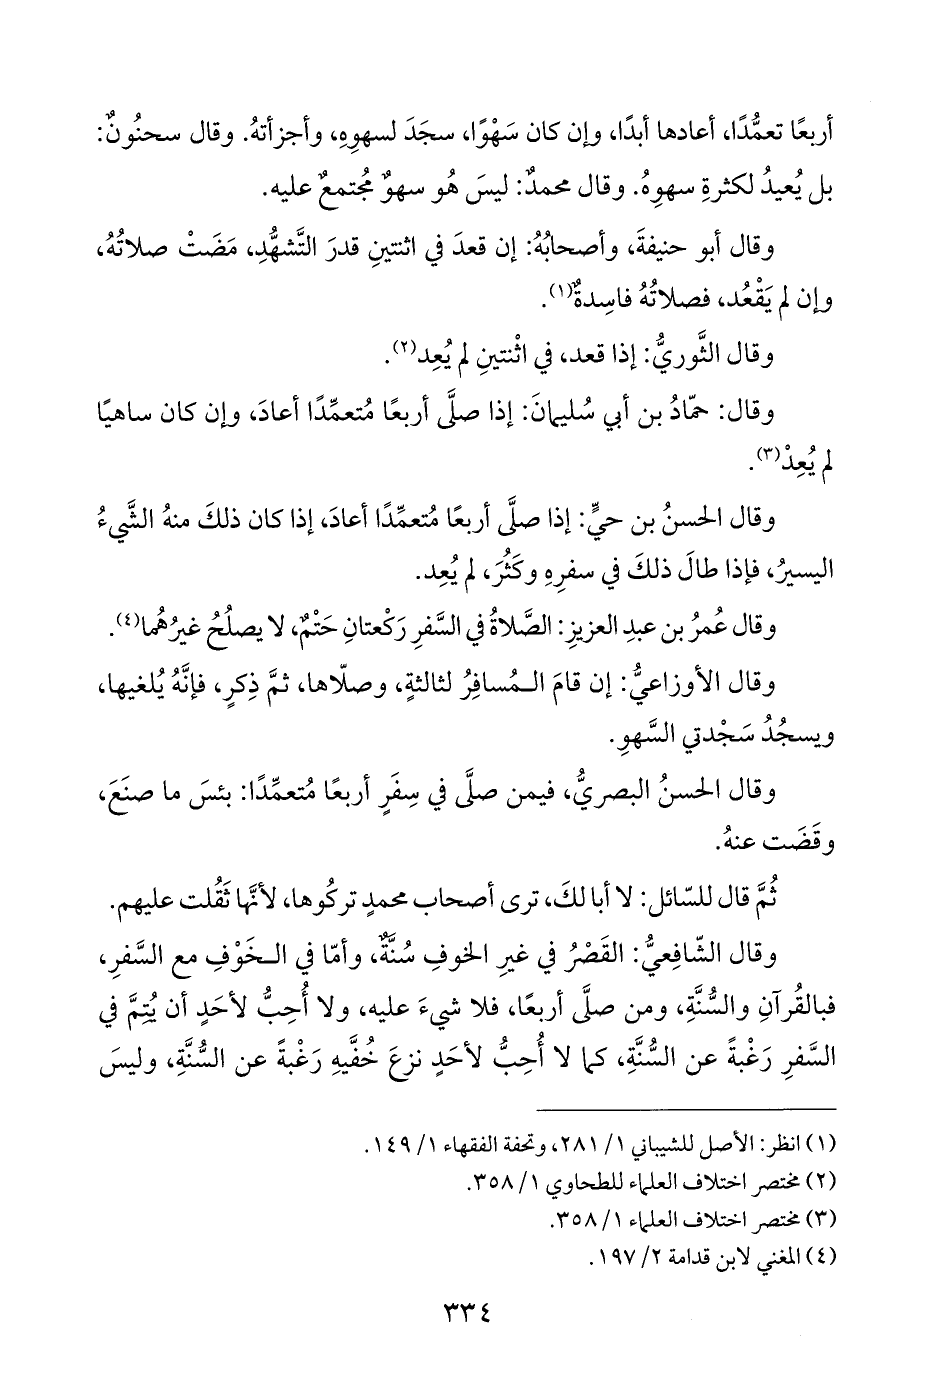 أربعًا تعمُّدًا، أعادها أبدًا، وإن كان سَهْوًا، سجَدَ لسهوِهِ، وأجزأتهُ. وقال سحنُونٌ:
بل يُعيدُ لكثرةِ سهوِهُ. وقال محمدٌ: ليسَ هُو سهوٌ مجُتمعٌ عليه.
وقال أبو حنيفةَ، وأصحابُهُ: إن قعدَ في اثنتينِ قدرَ التَّشهُّدِ، مَضَتْ صلاتُهُ،
وإن لم يَقْعُد، فصلاتُهُ فاسِدةٌ(١).
وقال الثَّوريُّ: إذا قعد، في اثْنتينِ لم يُعِد(٢).
وقال: حمّادُ بن أبي سُليمانَ: إذا صلَّى أربعًا مُتعمِّدًا أعادَ، وإن كان ساهيًا
لم يُعِدْ(٣).
وقال الحسنُ بن حيٍّ: إذا صلَّى أربعًا مُتعمِّدًا أعادَ، إذا كان ذلكَ منهُ الشَّيءُ
اليسيرُ، فإذا طالَ ذلكَ في سفرِهِ وكَثُرَ، لم يُعِد.
وقال عُمرُ بن عبدِ العزيزِ: الصَّلاةُ في السَّفرِ رَكْعتانِ حَتْمٌ، لا يصلُحُ غيرُهُما(٤).
وقال الأوزاعيُّ: إن قامَ الـمُسافِرُ لثالثةٍ، وصلّاها، ثمَّ ذِكرٍ، فإنَّهُ يُلغيها،
ويسجُدُ سَجْدتي السَّهوِ.
وقال الحسنُ البصريُّ، فيمن صلَّى في سِفَرٍ أربعًا مُتعمِّدًا: بئسَ ما صنَعَ،
وقَضَت عنهُ.
ثُمَّ قال للسّائل: لا أبا لكَ، ترى أصحاب محمدٍ تركُوها، لأنَّها ثَقُلت عليهم.
وقال الشّافِعيُّ: القَصْرُ في غيرِ الخوفِ سُنَّةٌ، وأمّا في الـخَوْفِ مع السَّفرِ،
فبالقُرآنِ والسُّنَّةِ، ومن صلَّى أربعًا، فلا شيءَ عليه، ولا أُحِبُّ لأحَدٍ أن يُتِمَّ في
السَّفرِ رَغْبةً عن السُّنَّةِ، كما لا أُحِبُّ لأحَدٍ نزعَ خُفَّيهِ رَغْبةً عن السُّنَّةِ، وليسَ
(١) انظر: الأصل للشيباني ١/ ٢٨١، وتحفة الفقهاء ١/ ١٤٩.
(٢) مختصر اختلاف العلماء للطحاوي ١/ ٣٥٨.
(٣) مختصر اختلاف العلماء ١/ ٣٥٨.
(٤) المغني لابن قدامة ٢/ ١٩٧.
٣٣٤